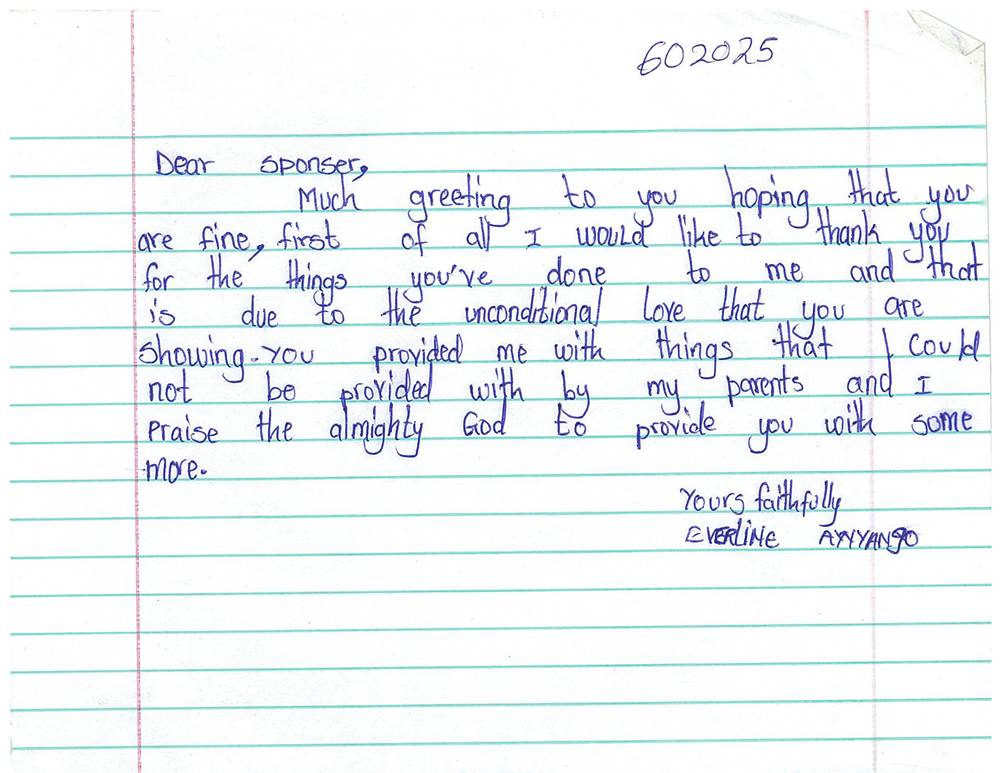 602025
Dear Sponser,
Much greeting to you hoping that you
are fine, first of all I would like to thank you
for the things you've done to me and that
is due to the unconditional love that you are
showing. You provided me with things that I could
not be provided with by my parents and I
praise the almighty God to provide you with some
more.
Yours faithfully
EVERLINE